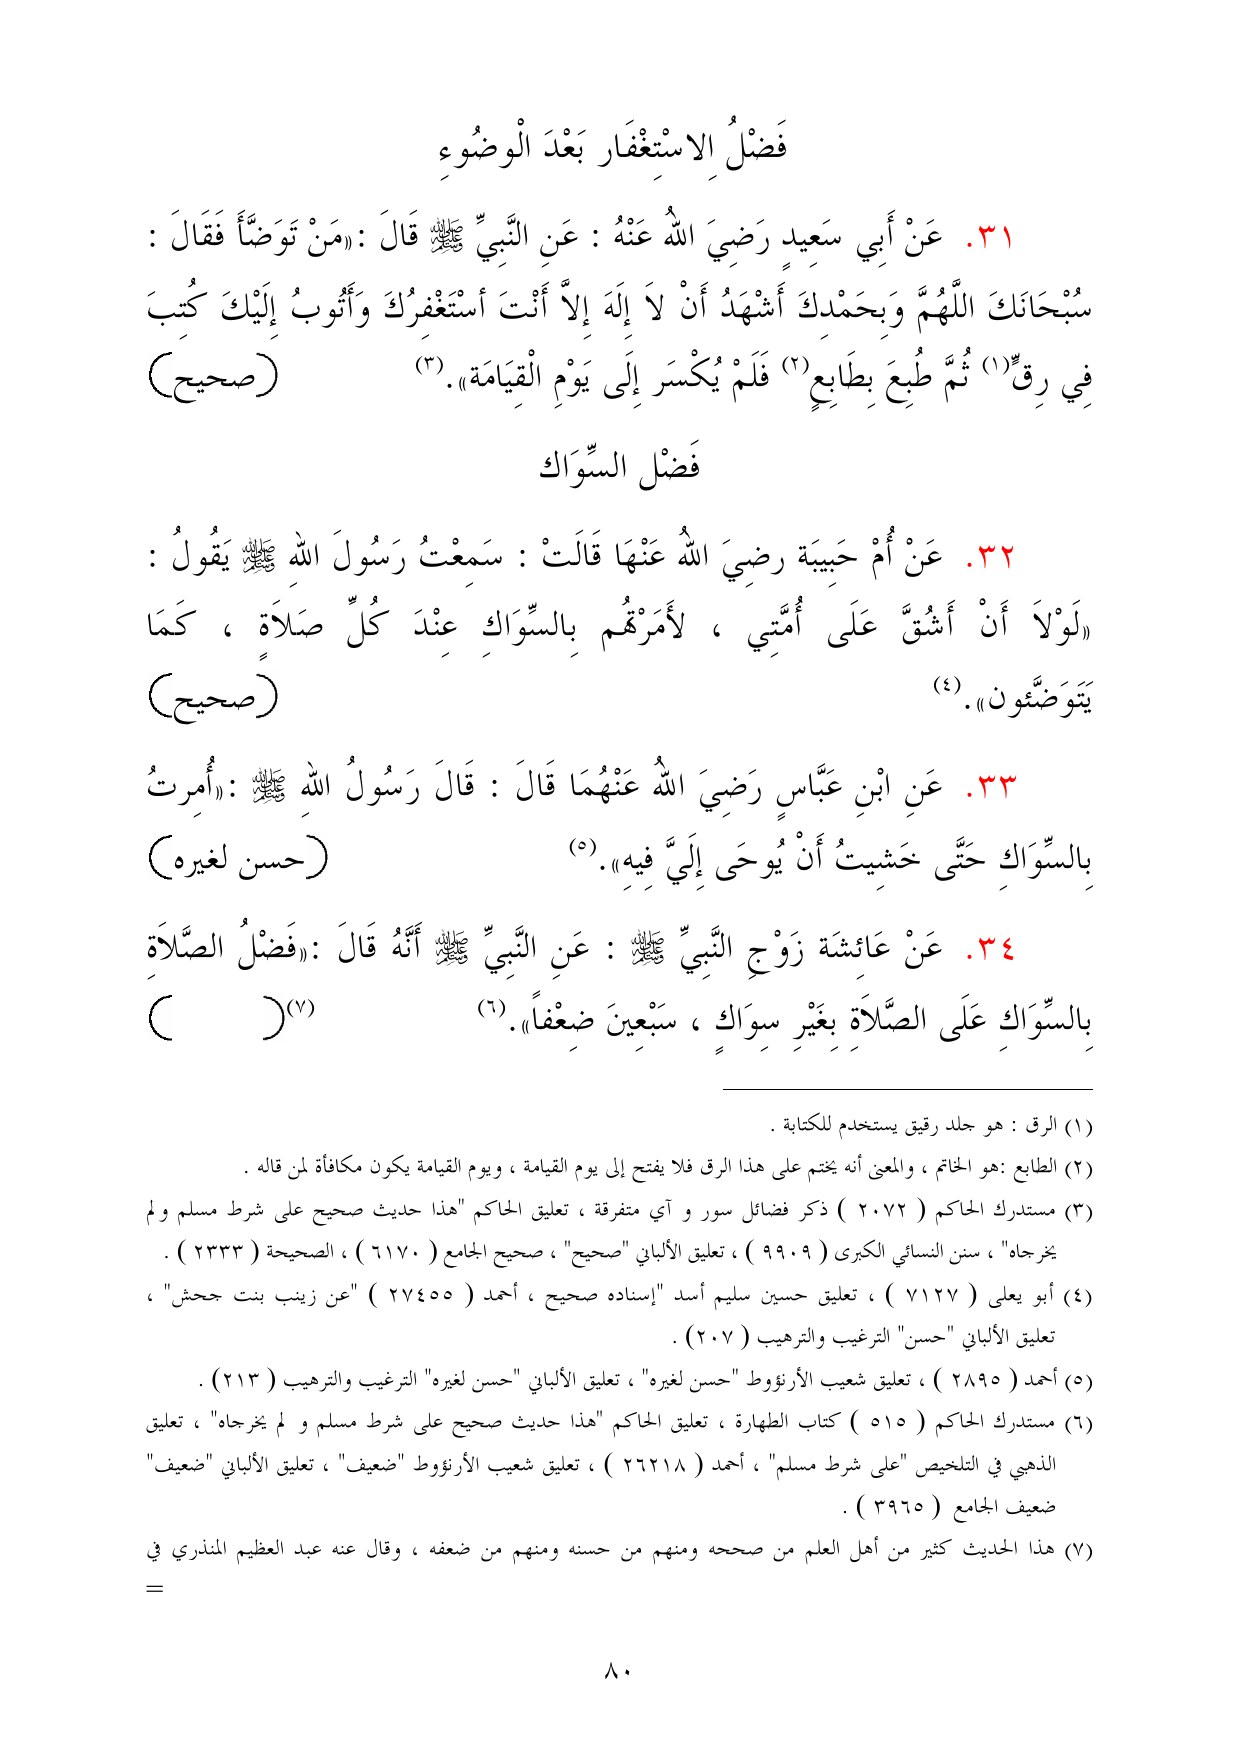 فَضْلُ الِاسْتِغْفَارِ بَعْدَ الْوضُوءِ
٣١. عَنْ أَبِي سَعِيدٍ رَضِيَ اللهُ عَنْهُ : عَنِ النَّبِيِّ ﷺ قَالَ :«مَنْ تَوَضَّأَ فَقَالَ :
سُبْحَانَكَ اللَّهُمَّ وَبِحَمْدِكَ أَشْهَدُ أَنْ لاَ إِلَهَ إِلاَّ أَنْتَ أسْتَغْفِرُكَ وَأَتُوبُ إِلَيْكَ كُتِبَ
فِي رِقٍّ(١) ثُمَّ طُبِعَ بِطَابِعٍ(٢) فَلَمْ يُكْسَر إِلَى يَوْمِ الْقِيَامَة».(٣) (صحيح)
فَضْل السِّوَاك
٣٢. عَنْ أُمْ حَبِيبَة رضِيَ اللهُ عَنْهَا قَالَتْ : سَمِعْتُ رَسُولَ اللهِ ﷺ يَقُولُ :
«لَوْلاَ أَنْ أَشُقَّ عَلَى أُمَّتِي ، لأَمَرْتُهُم بِالسِّوَاكِ عِنْدَ كُلِّ صَلاَةٍ ، كَمَا
يَتَوَضَّئون».(٤) (صحيح)
٣٣. عَنِ ابْنِ عَبَّاسٍ رَضِيَ اللهُ عَنْهُمَا قَالَ : قَالَ رَسُولُ اللهِ ﷺ :«أُمِرتُ
بِالسِّوَاكِ حَتَّى خَشِيتُ أَنْ يُوحَى إِلَيَّ فِيهِ».(٥) (حسن لغيره)
٣٤. عَنْ عَائِشَة زَوْجِ النَّبِيِّ ﷺ : عَنِ النَّبِيِّ ﷺ أَنَّهُ قَالَ :«فَضْلُ الصَّلاَةِ
بِالسِّوَاكِ عَلَى الصَّلاَةِ بِغَيْرِ سِوَاكٍ ، سَبْعِينَ ضِعْفاً».(٦) ( )(٧)
(١) الرق : هو جلد رقيق يستخدم للكتابة .
(٢) الطابع :هو الخاتم ، والمعنى أنه يختم على هذا الرق فلا يفتح إلى يوم القيامة ، ويوم القيامة يكون مكافأة لمن قاله .
(٣) مستدرك الحاكم ( ٢٠٧٢ ) ذكر فضائل سور و آي متفرقة ، تعليق الحاكم "هذا حديث صحيح على شرط مسلم و لم
يخرجاه" ، سنن النسائي الكبرى ( ٩٩٠٩ ) ، تعليق الألباني "صحيح" ، صحيح الجامع ( ٦١٧٠ ) ، الصحيحة ( ٢٣٣٣ ) .
(٤) أبو يعلى ( ٧١٢٧ ) ، تعليق حسين سليم أسد "إسناده صحيح ، أحمد ( ٢٧٤٥٥ ) "عن زينب بنت جحش" ،
تعليق الألباني "حسن" الترغيب والترهيب ( ٢٠٧) .
(٥) أحمد ( ٢٨٩٥ ) ، تعليق شعيب الأرنؤوط "حسن لغيره" ، تعليق الألباني "حسن لغيره" الترغيب والترهيب ( ٢١٣) .
(٦) مستدرك الحاكم ( ٥١٥ ) كتاب الطهارة ، تعليق الحاكم "هذا حديث صحيح على شرط مسلم و لم يخرجاه" ، تعليق
الذهبي في التلخيص "على شرط مسلم" ، أحمد ( ٢٦٢١٨ ) ، تعليق شعيب الأرنؤوط "ضعيف" ، تعليق الألباني "ضعيف"
ضعيف الجامع ( ٣٩٦٥ ) .
(٧) هذا الحديث كثير من أهل العلم من صححه ومنهم من حسنه ومنهم من ضعفه ، وقال عنه عبد العظيم المنذري في
=
٨٠